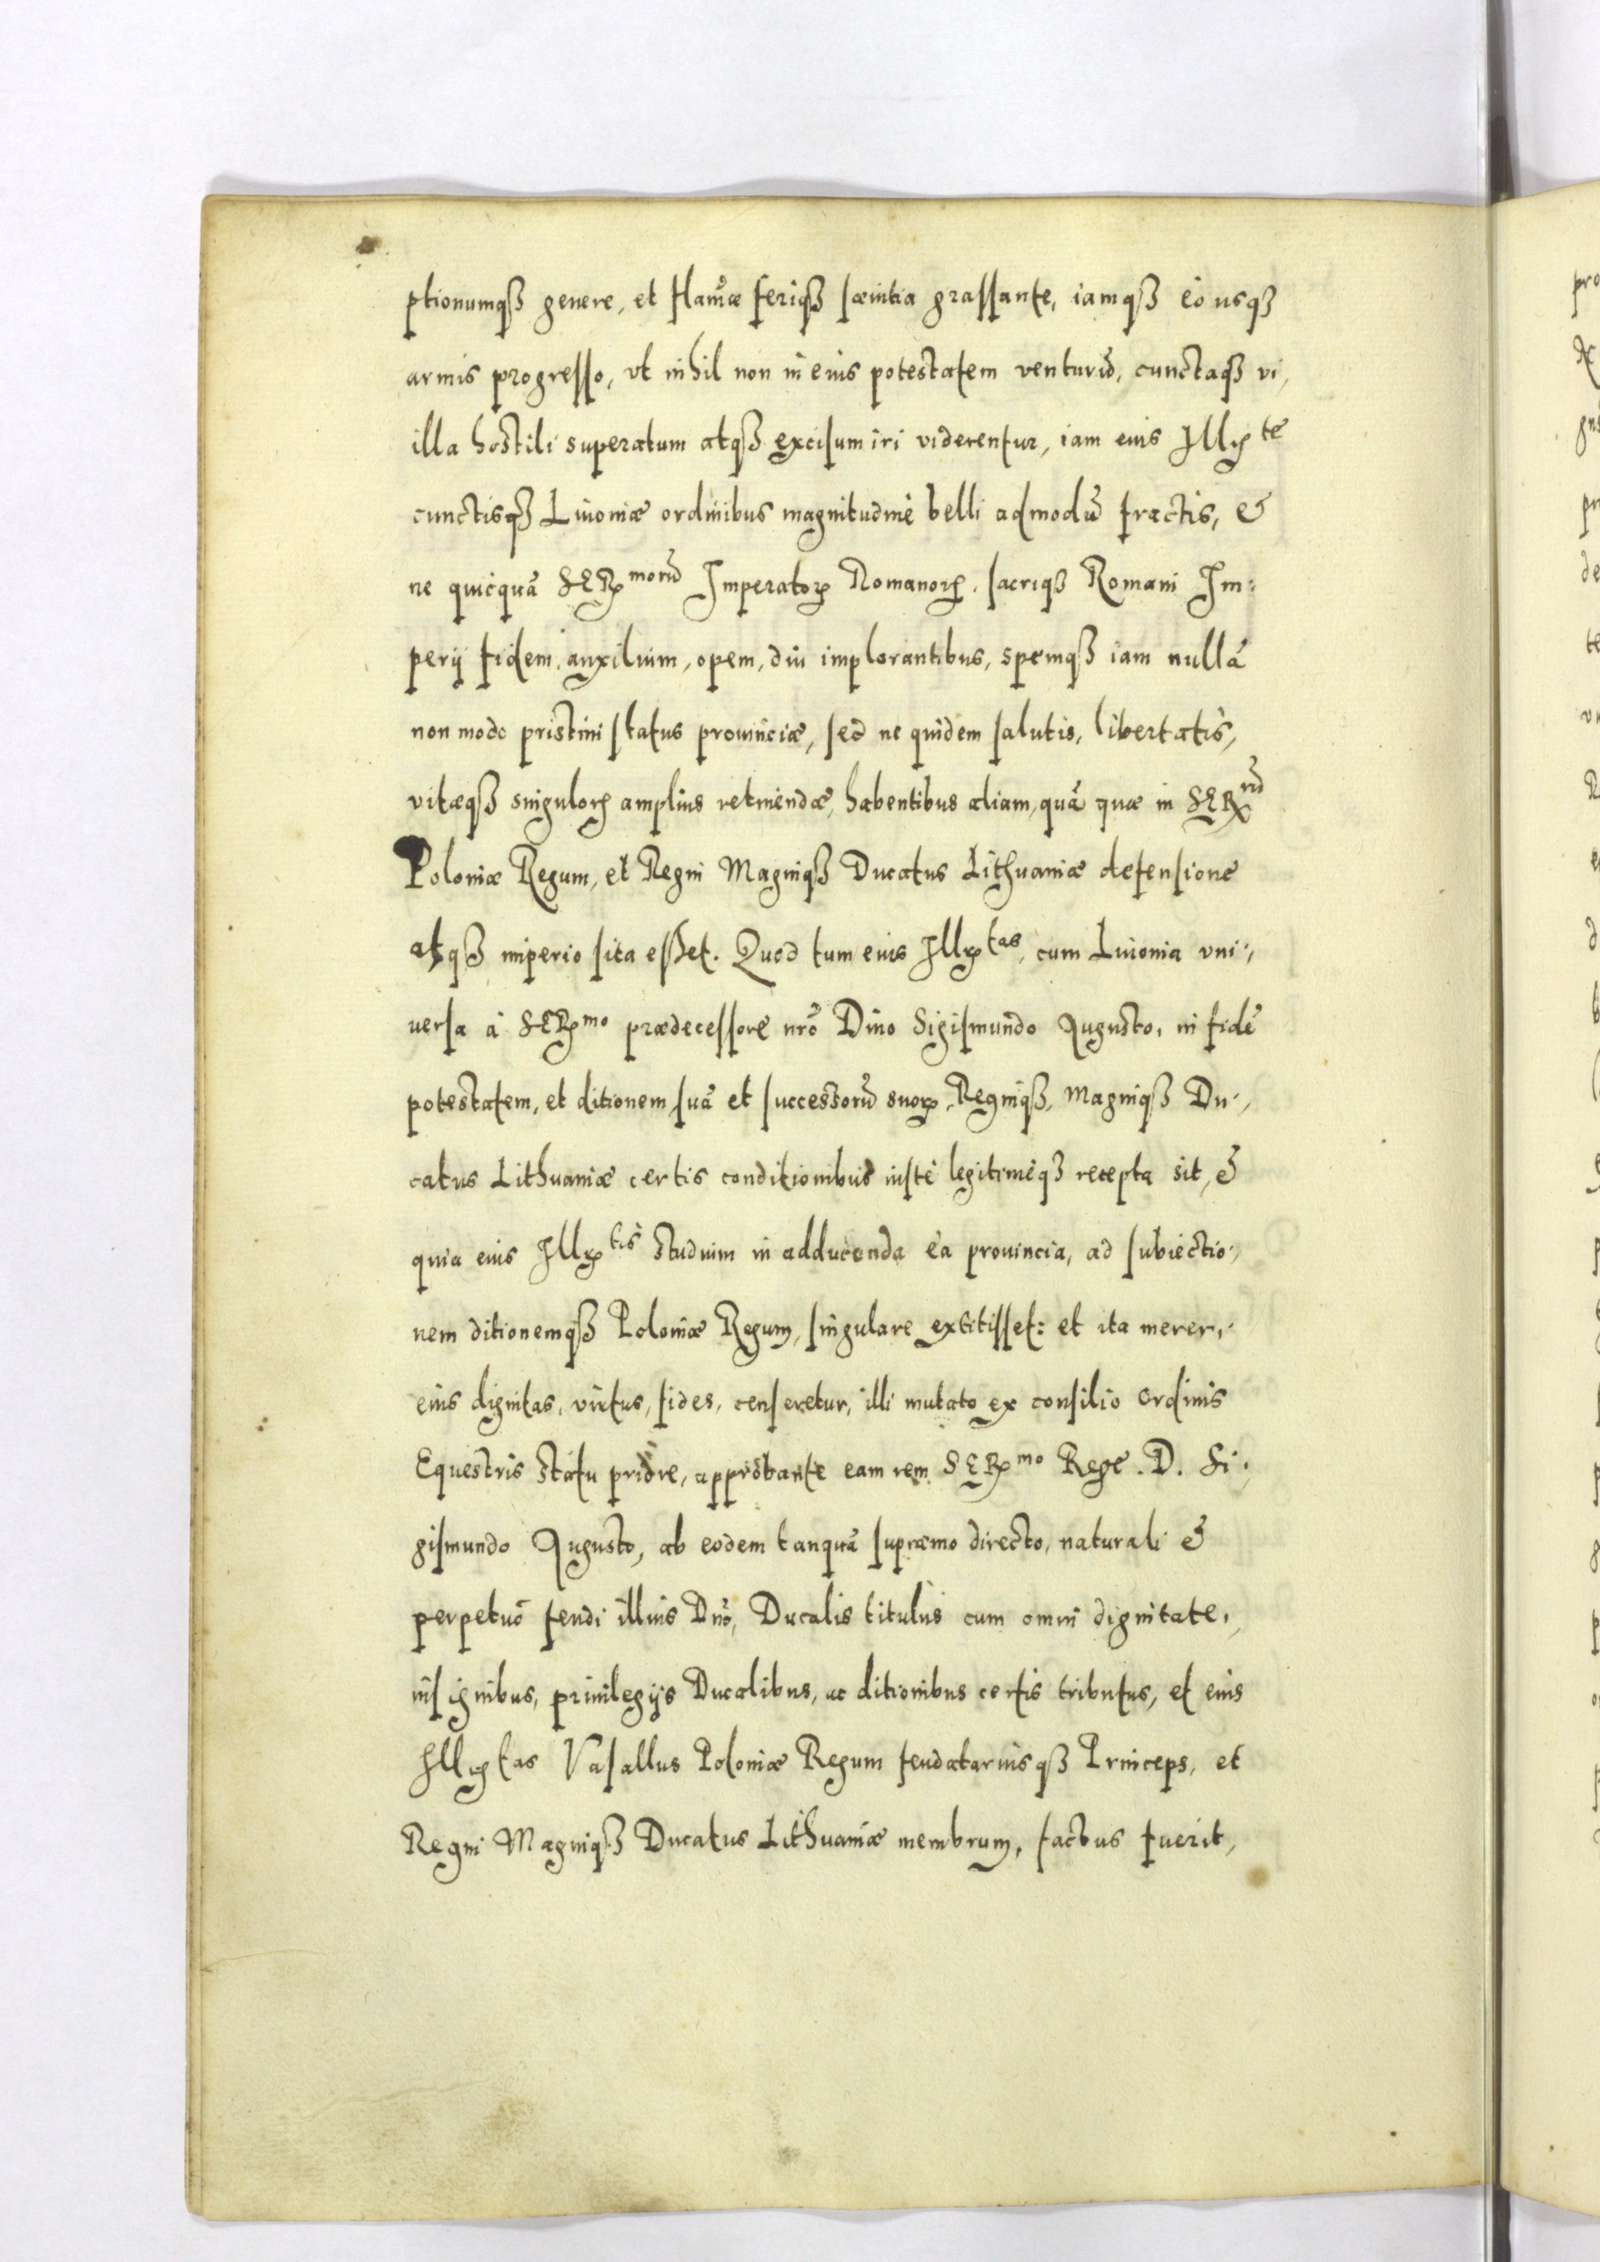 ptionumqꝫ genere, et flam̃æ feriqꝫ sæuitia grassante, iamqꝫ eò usqꝫ
armis progresso, vt nihil non in eius potestatem venturũ, cunctaqꝫ vi,
illa hostili superatum atqꝫ excisum iri viderentur, iam eius Illꝝ te
cunctisqꝫ Liuoniæ ordinibus magnitudinè belli admodũ fractis, &
ne quicquã SERꝝ morũ Imperatoꝝ Romanoꝝ, sacriqꝫ Romani Im:
perij fidem, auxilium, opem, diu implorantibus, spemqꝫ iam nullã
non modo pristini status prouinciæ, sed ne quidem salutis, libertatis,
vitæqꝫ singuloꝝ amplius retinendæ, habentibus aliam, quã quæ in SERꝝ rũ
Poloniæ Regum, et Regni Magniqꝫ Ducatus Lithuaniæ defensione
atqꝫ imperio sita esset. Quod tum eius Illꝝ tas, cum Liuonia vni:,
uersa à SERꝝ mo prædecessore nrõ Dño Sigismundo Augusto, in fidẽ
potestatem, et ditionem suã et successorũ suoꝝ, Regniqꝫ, Magniqꝫ Du:,
catus Lithuaniæ certis conditionibus iustè legitimèqꝫ recepta sit, &
quia eius Illꝝ tis studium in adducenda ea prouincia, ad subiectio:,
nem ditionemqꝫ Poloniæ Regum, singulare extitisset: et ita merer:,
eius dignitas, virtus, fides, censeretur, illi mutato ex consilio ordinis
Equestris statu priore, approbante eam rem SERꝝ mo Rege. D. Si:,
gismundo Augusto, ab eodem tanquã supræmo directo, naturali &
perpetuò feudi illius Dño, Ducalis titulus cum omni dignitate,
insignibus, priuilegijs Ducalibus, ac ditionibus certis tributus, et eius
Illꝝ tas Vasallus Poloniæ Regum feudatariusqꝫ Princeps, et
Regni Magniqꝫ Ducatus Lithuaniæ membrum, factus fuerit,